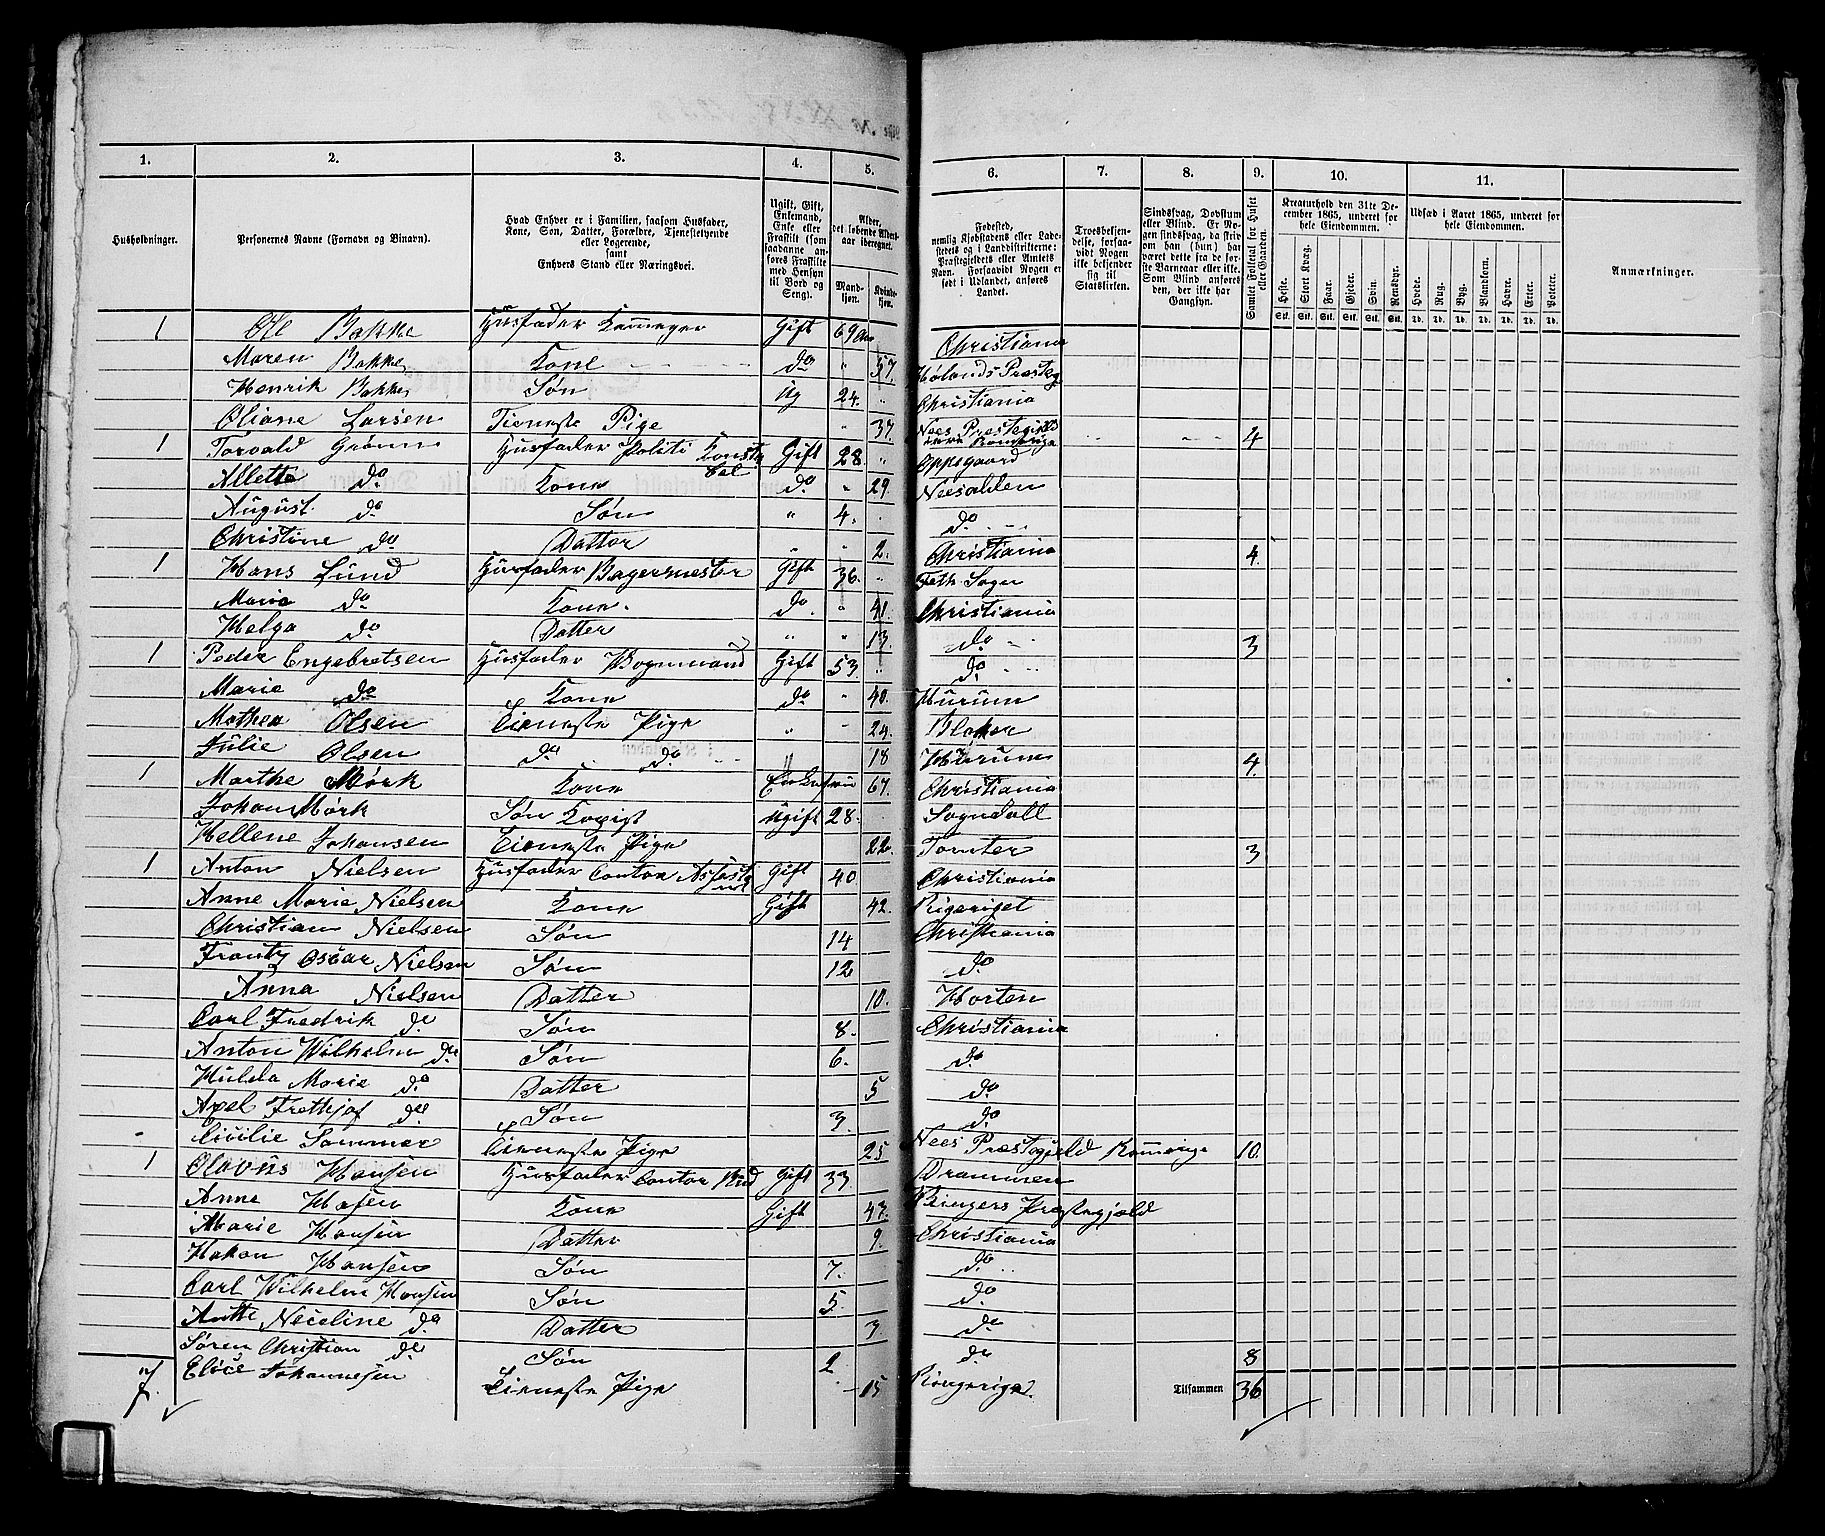 1. 2. 3. 4. 5. 6. 7. 8. 9. 10. 11.
Husholdninger.
Personernes Navne (Fornavn og Binavn).
Hvad Enhver er i Familien, saasom Husfader,
Kone, Søn, Datter, Forældre, Tjenestetyende
eller Logerende,
samt
Enhvers Stand eller Næringsvei.
Ugift, Gift,
Enkemand,
Enke eller
Fraskilt (som
saadanne an-
føres Fraskilte
med Hensyn
til Bord og
Seng).
Alder,
det løbende Alders-
aar iberegnet.
Mand-
kjøn.
Kvinde-
kjøn.
Fødested,
nemlig Kjøbstadens eller Lade-
stedets og i Landdistrikterne:
Præstegjeldets eller Amtets
Navn. Forsaavidt Nogen er
født i Udlandet, anføres
Landet.
Troesbekjen-
delse, forsaa-
vidt Nogen
ikke bekjender
sig til
Statskirken.
Sindssvag, Døvstum
eller Blind. Er No-
gen sindssvag, da skriv
om han (hun) har
været dette fra de før-
ste Barneaar eller ikke.
Som Blind ansøres
den, der ikke har
Gangsyn.
Samlet Folketal for Huset
eller Gaarden.
Kreaturhold den 31te De-
cember 1865, underet for
hele Eiendommen.
Heste. Stort Kvæg. Faar. Gjeder. Svin. Rensdyr.
Stk. Stk. Stk. Stk. Stk. Stk.
Udsæd i Aaret 1865, underet for
hele Eiendommen.
Hvede. Rug. Byg. Blandkorn. Havre. Erter. Poteter.
Td. Td. Td. Td. Td. Td. Td.
Anmærkninger.
1 Ole Bakke Husfader Gift 69 Aar Christiania
Maren Bakke Kone do " 57. Hølands Præsteg
Henrik Bakke Søn Ug 24. " Christiania
Oliane Larsen Tieneste Pige " 37. Nees Præstegield 4
1 Torvald Grønn Husfader Politi Konstabel Gift 28 " Oppegaard
Alletta do Kone do " 29. Neesodden
August do Søn " 4. . do
Christine do Datter " " 2. Christiania 4.
1 Hans Lund Husfader Bagermester Gift 36 " Feth Sogn
Maria do Kone. do " 41. Christiania
Helga do Datter " " 13. do 3
1 Peder Engebretsen Husfader Vognmand Gift 53. " do
Marie do Kone do " 40. Hurum
Mathea Olsen Tieneste Pige " " 24. Blaker
Julie Olsen do do " 18 Hurum 4.
1 Marthe Mørk Kone 67. Christiania
Johan Mørk Søn Kopist Ugift 28. Sogndall
Hellene Johansen Tieneste Pige 22. Tomter 3
1 Anton Nielsen Husfader Contor Assistent Gift 40 Christiania
Anne Marie Nielsen Kone Gift 42. Rigeriget
Christian Nielsen Søn 14 Christiania
Frantz Oscar Nielsen Søn 12 do
Anna Nielsen Datter 10. Horten
Carl Fredrik do Søn 8. Christiania
Anton Wilhelm do Søn 6. do
Hulda Marie do Datter 5 do
Axel Frethjof do Søn 3. do
Cicilie Sommer Tieneste Pige 25 Nees Præstegjeld Romerige 10.
1 Olavus Hansen Husfader Contor Bud Gift 33 Drammen
Anne Hansen Kone Gift 43. Ringers Præstegjeld
Marie Hansen Datter 9. Christiania
Hakon Hansen Søn 7. do
Carl Wilhelm Hansen Søn 5. do
Anthe Nicoline do Datter 3. do
Søren Christian do Søn 2 do 8
7. Elvice Johannesen Tieneste Pige 15 Ringerige. Tilsammen 36